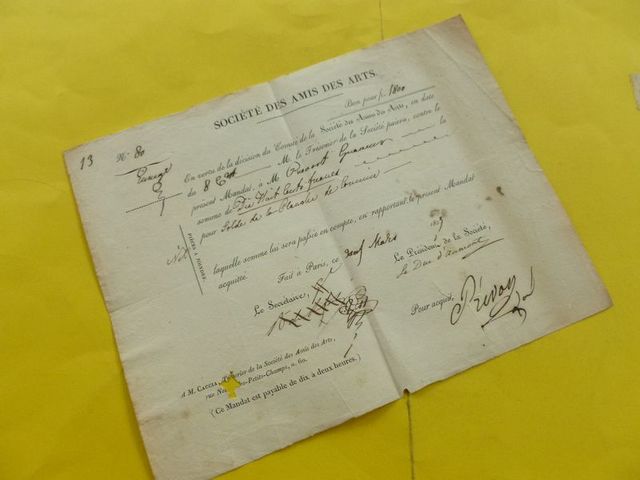 SOCIÉTÉ DES AMIS DES ARTS.
Bon pour fr. 1800
13 N.º 80
En vertu de la décision du Comité de la Société des Amis des Arts, en date
du 8 M. le Trésorier de la Société paiera, contre le
présent Mandat, à M. Graveur la
somme de Dix Huit Cents francs
pour Solde de la Planche de
PIÈCES A JOINDRE.
laquelle somme lui sera passée en compte, en rapportant le présent Mandat
acquitté.
Fait à Paris, ce neuf Mars 18
Le Secrétaire,
Le Président de la Société,
Le Duc d'aumont
Pour acquit,
A M. CACCIA, Trésorier de la Société des Amis des Arts,
rue Petits-Champs, n. 60.
(Ce Mandat est payable de dix à deux heures.)